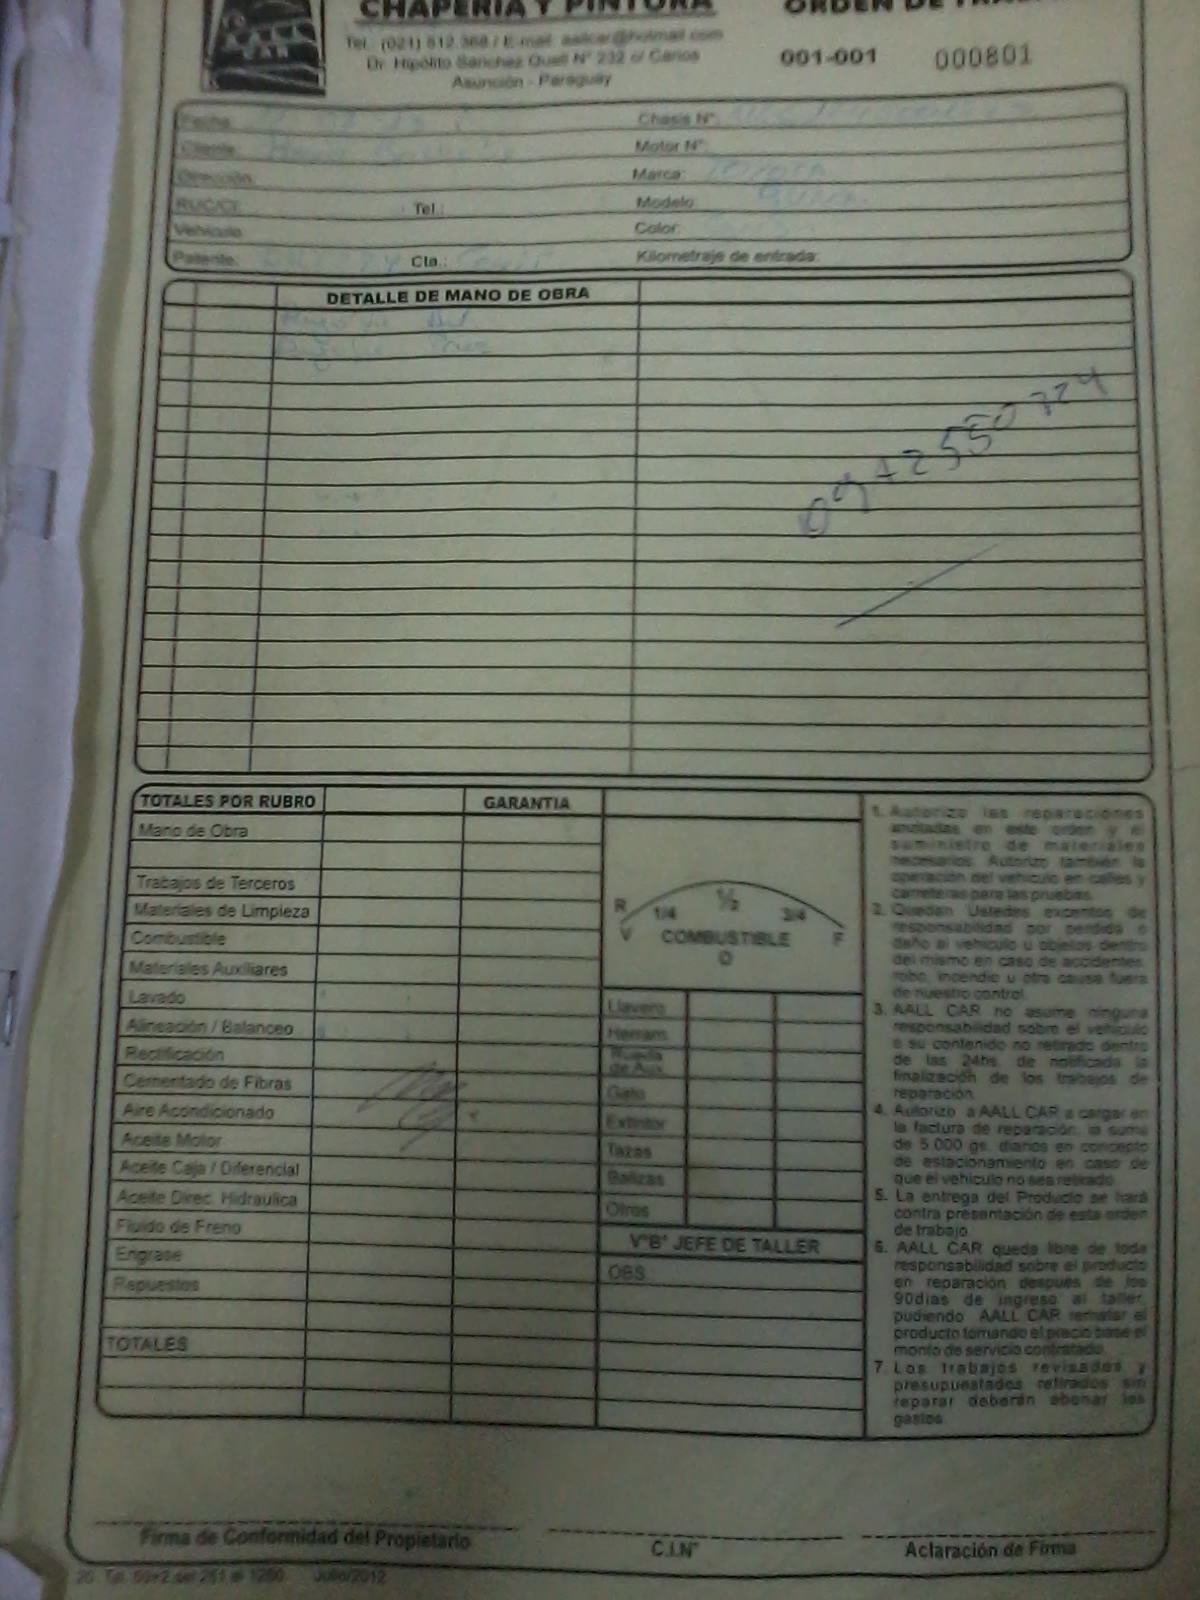 AALL
CAR
CHAPERIA Y PINTURA
ORDEN DE
Tel.: (021) 612.368 / E-mail: aallcar@hotmail.com
Dr. Hipólito Sanchez Quell N° 232 c/ Carios
Asunción - Paraguay
001-001 000801
Fecha: Chasis N°:
Cliente: Motor N°:
Dirección: Marca: TOYOTA
RUC/CI: Tel.: Modelo:
Vehículo: Color:
Patente: Cta.: Kilometraje de entrada:
DETALLE DE MANO DE OBRA
TOTALES POR RUBRO GARANTIA
Mano de Obra
Trabajos de Terceros
Materiales de Limpieza
Combustible
Materiales Auxiliares
Lavado
Alineación / Balanceo
Rectificación
Cementado de Fibras
Aire Acondicionado
Aceite Motor
Aceite Caja / Diferencial
Aceite Direc. Hidraulica
Fluido de Freno
Engrase
Repuestos
TOTALES
R 1/4 ½ 3/4
V COMBUSTIBLE F
O
Llavero
Herram.
Rueda de Aux.
Gato
Extintor
Tazas
Balizas
Otros
V°B° JEFE DE TALLER
OBS.:
1. Autorizo las reparaciones
anotadas en este orden y el
suministro de materiales
necesarios. Autorizo también la
operación del vehículo en calles y
carreteras para las pruebas.
2. Quedan Ustedes excentos de
responsabilidad por perdida o
daño al vehículo u objetos dentro
del mismo en caso de accidentes,
robo, incendio u otra causa fuera
de nuestro control.
3. AALL CAR no asume ninguna
responsabilidad sobre el vehículo
o su contenido no retirado dentro
de las 24hs. de notificada la
finalización de los trabajos de
reparación.
4. Autorizo a AALL CAR a cargar en
la factura de reparación, la suma
de 5.000 gs. diarios en concepto
de estacionamiento en caso de
que el vehículo no sea retirado.
5. La entrega del Producto se hará
contra presentación de esta orden
de trabajo.
6. AALL CAR queda libre de toda
responsabilidad sobre el producto
en reparación después de los
90días de ingreso al taller,
pudiendo AALL CAR rematar el
producto tomando el precio base el
monto de servicio contratado.
7. Los trabajos revisados y
presupuestados retirados sin
reparar deberán abonar los
gastos.
Firma de Conformidad del Propietario C.I.N° Aclaración de Firma
20 Tal. 50x2 del 251 al 1250 Julio/2012